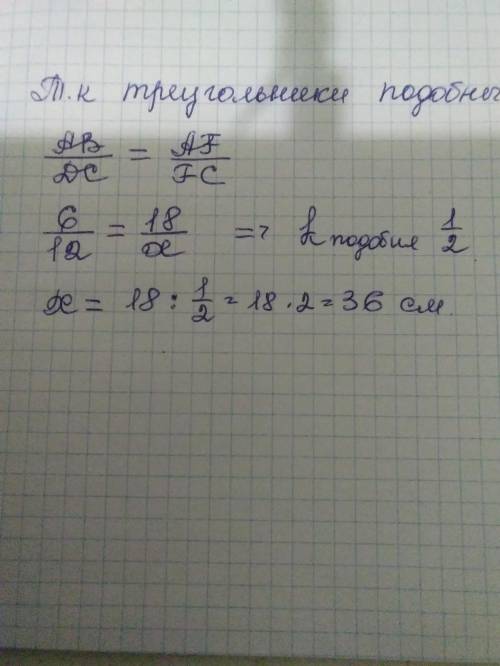 Т.к треугольники подобны
AB/DC = AF/FC
6/12 = 18/x => k подобия 1/2
x = 18 : 1/2 = 18 · 2 = 36 см.